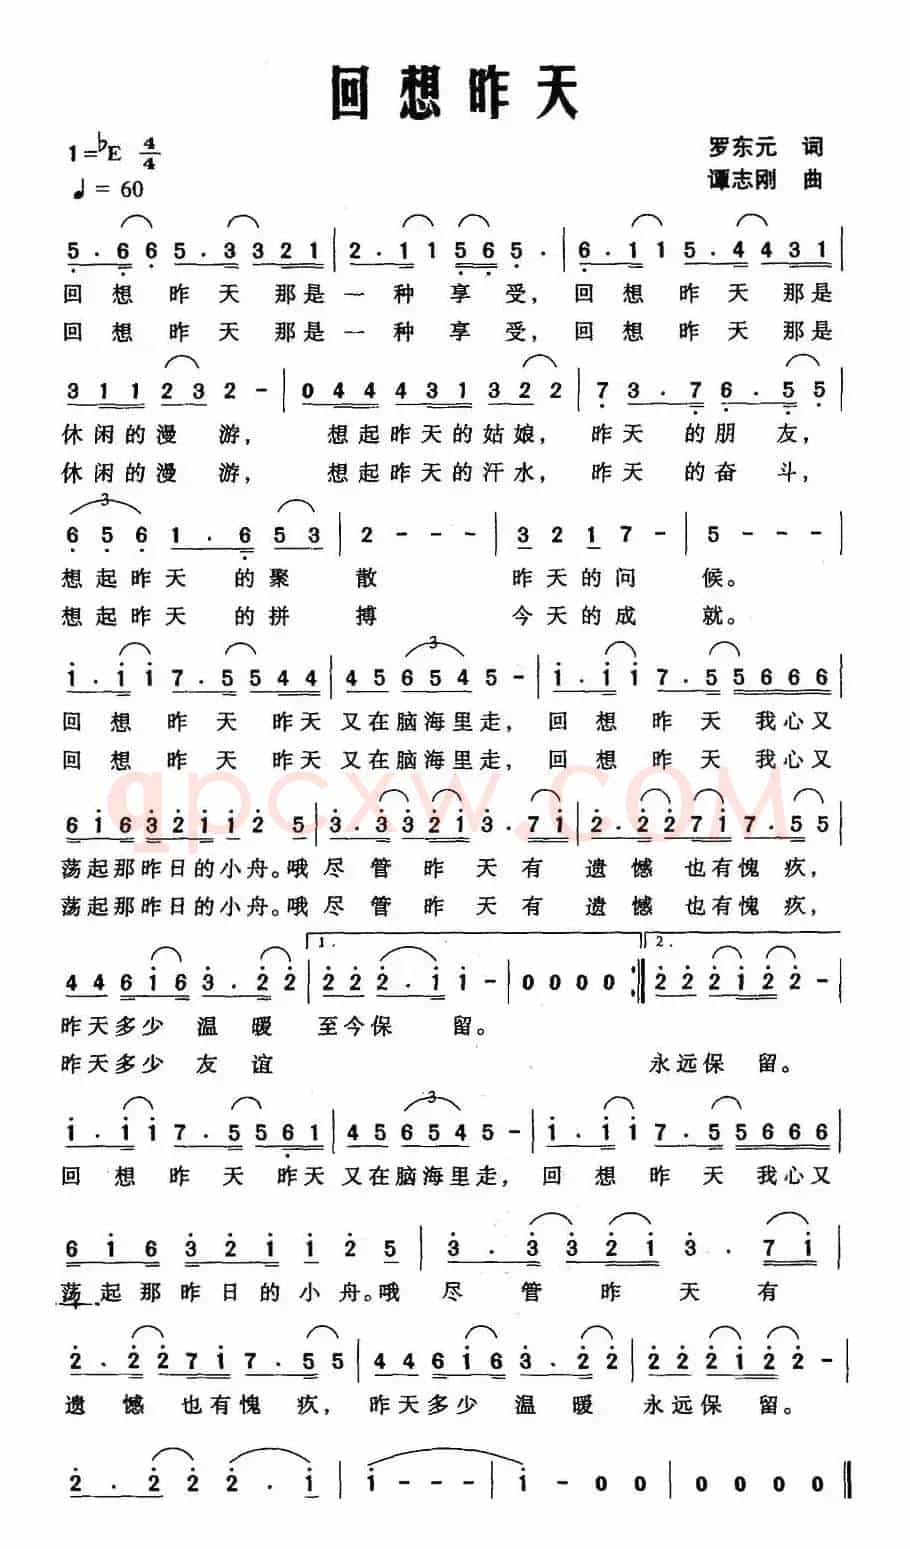 回想昨天
1=♭E 4/4
罗东元 词
♩= 60
谭志刚 曲
5.665.33321 | 2.11565. | 6.115.4431 |
回想昨天那是一种享受，回想昨天那是
回想昨天那是一种享受，回想昨天那是
311232- | 044431322 | 73.76.55 |
休闲的漫游，想起昨天的姑娘，昨天的朋友，
休闲的漫游，想起昨天的汗水，昨天的奋斗，
3
6561.653 | 2--- | 3217- | 5--- |
想起昨天的聚散 昨天的问候。
想起昨天的拼搏 今天的成就。
3
1.117.55544 | 456545- | 1.117.555666 |
回想昨天昨天又在脑海里走，回想昨天我心又
回想昨天昨天又在脑海里走，回想昨天我心又
qpcxw.COM
6163211125 | 3.33213.71 | 2.22717.55 |
荡起那昨日的小舟。哦尽管昨天有遗憾也有愧疚，
荡起那昨日的小舟。哦尽管昨天有遗憾也有愧疚，
1. 2.
446163.22 | 222.11- | 0000 :‖ 222122- |
昨天多少温暖至今保留。
昨天多少友谊 永远保留。
3
1.117.55561 | 456545- | 1.117.555666 |
回想昨天昨天又在脑海里走，回想昨天我心又
6163211125 | 3.33213.71 |
荡起那昨日的小舟。哦尽管昨天有
2.22717.55 | 446163.22 | 222122- |
遗憾也有愧疚，昨天多少温暖永远保留。
2.222.1 | 1--- | 1-00 | 0000 ‖